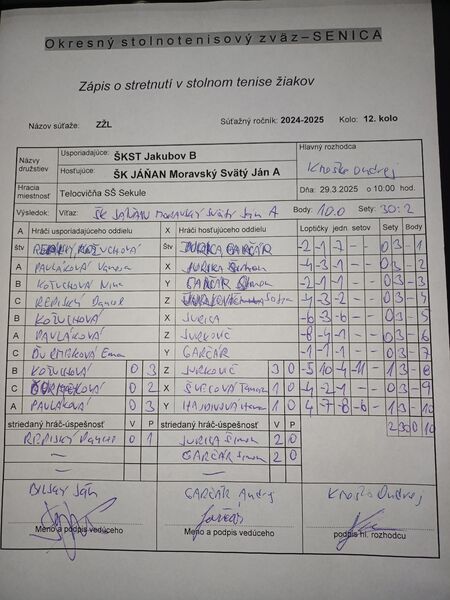 Okresný stolnotenisový zväz–SENICA
Zápis o stretnutí v stolnom tenise žiakov
Názov súťaže: ZŽL Súťažný ročník: 2024-2025 Kolo: 12. kolo
Názvy družstiev Usporiadajúce: ŠKST Jakubov B Hlavný rozhodca
Hosťujúce: ŠK JÁŇAN Moravský Svätý Ján A Ondrej
Hracia miestnosť Telocvičňa SŠ Sekule Dňa: 29.3.2025 o 10:00 hod.
Výsledok: Víťaz: ŠK JÁŇAN MORAVSKÝ SVÄTÝ Ján A Body: 10:0 Sety: 30:2
A Hráči usporiadajúceho družstva X Hráči hosťujúceho družstva Loptičky jedn. setov Sety Body
štv KOŽUCHOVÁ Štv JURICA GARČÁR -2 -1 -7 - - 0 3 - 1
A PAVLÁKOVÁ Vanesa X JURICA -4 -3 -1 - - 0 3 - 2
B KOŽUCHOVÁ Nina Y GARČÁR Šimon -2 -1 -1 - - 0 3 - 3
C REPISKÝ Z -4 -3 -2 - - 0 3 - 4
B KOŽUCHOVÁ X JURICA -6 -3 -6 - - 0 3 - 5
A PAVLÁKOVÁ Z JURKOVIČ -8 -4 -1 - - 0 3 - 6
C Ema Y GARČÁR -1 -1 -1 - - 0 3 - 7
B KOŽUCHOVÁ 0 3 Z JURKOVIČ 3 0 -5 10 -4 -11 - 1 3 - 8
C 0 2 X ŠVECOVÁ Tamara 1 0 -4 -2 -1 - - 0 3 - 9
A PAVLÁKOVÁ 0 3 Y 1 0 4 -7 -8 -6 - 1 3 - 10
striedaný hráč-úspešnosť V P striedaný hráč-úspešnosť V P 2 30 0 10
REPISKÝ 0 1 JURICA Šimon 2 0
— GARČÁR Šimon 2 0
— —
Ján GARČÁR Andrej Ondrej
Meno a podpis vedúceho Meno a podpis vedúceho podpis hl. rozhodcu